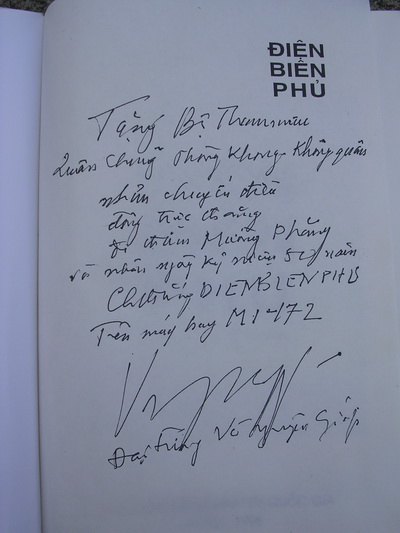 ĐIỆN
BIÊN
PHỦ
Tặng Bộ Tham mưu
Quân chủng Phòng Không - Không quân
nhân chuyến điều
động trực thăng
đi thăm Mường Phăng
và nhân ngày kỷ niệm 50 năm
Ch thắng DIENBIENPHU
Trên máy bay MI-172
Đại tướng Võ Nguyên Giáp